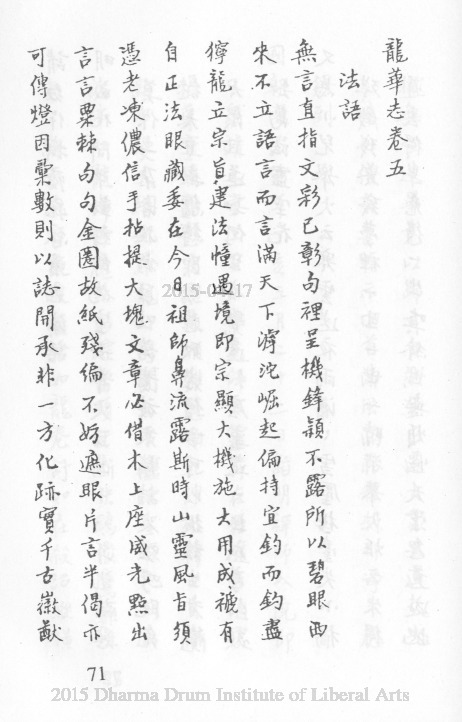 龍華志卷五
法語
無言直指文彩已彰句裡呈機鋒穎不露所以碧眼西
來不立語言而言滿天下滹沱崛起偏持宜鈞而鈞盡
獰龍立宗旨建法幢遇境即宗顯大機施大用成褫有
自正法眼藏委在今日祖師鼻流露斯時山靈風旨須
憑老凍儂信手拈提大塊文章必借木上座威光點出
言言栗棘句句金圈故紙殘編不妨遮眼片言半偈亦
可傳燈因彙數則以誌開承非一方化跡實千古徽猷
71
2015-04-17
2015 Dharma Drum Institute of Liberal Arts